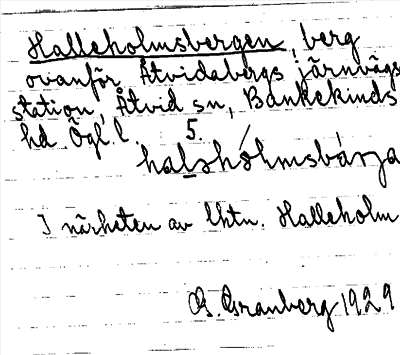 Halleholmsbergen, berg
ovanför Åtvidabergs järnvägs
station, Åtvid sn, Bankekinds
hd Ögl. l. 5.
I närheten av lhtn. Halleholm
G. Granberg 1929